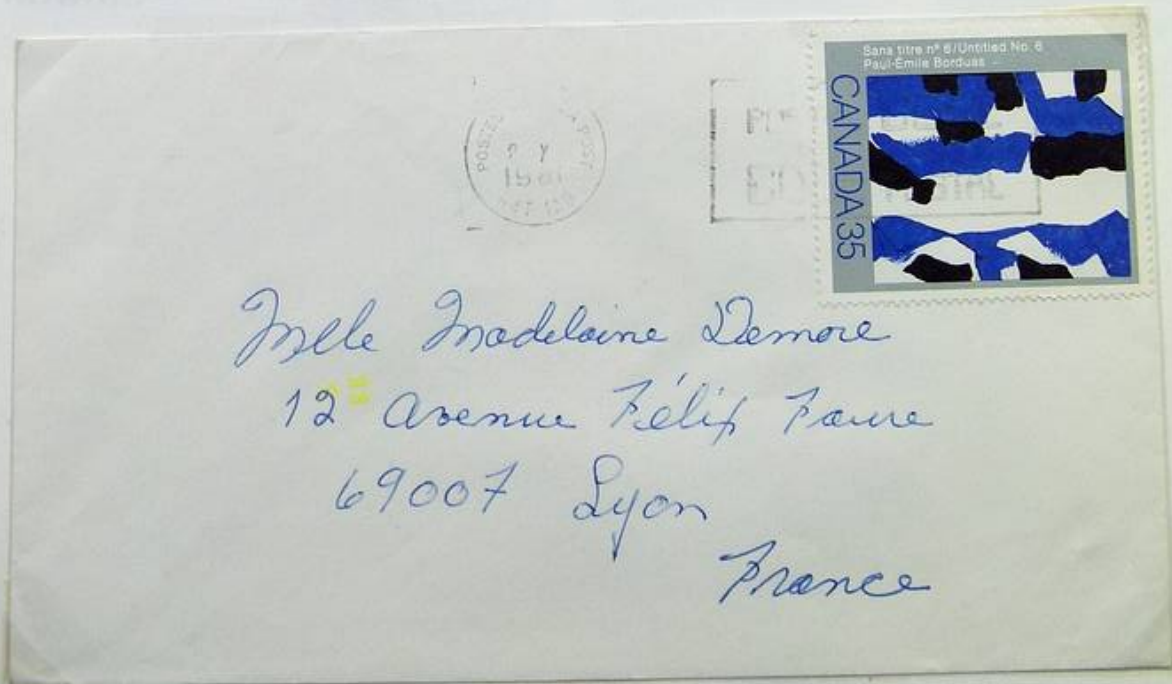 Sans titre nº 6/Untitled No. 6
Paul-Émile Borduas
CANADA 35
1981
Mlle Madelaine Demore
12 Avenue Félix Faure
69007 Lyon
France